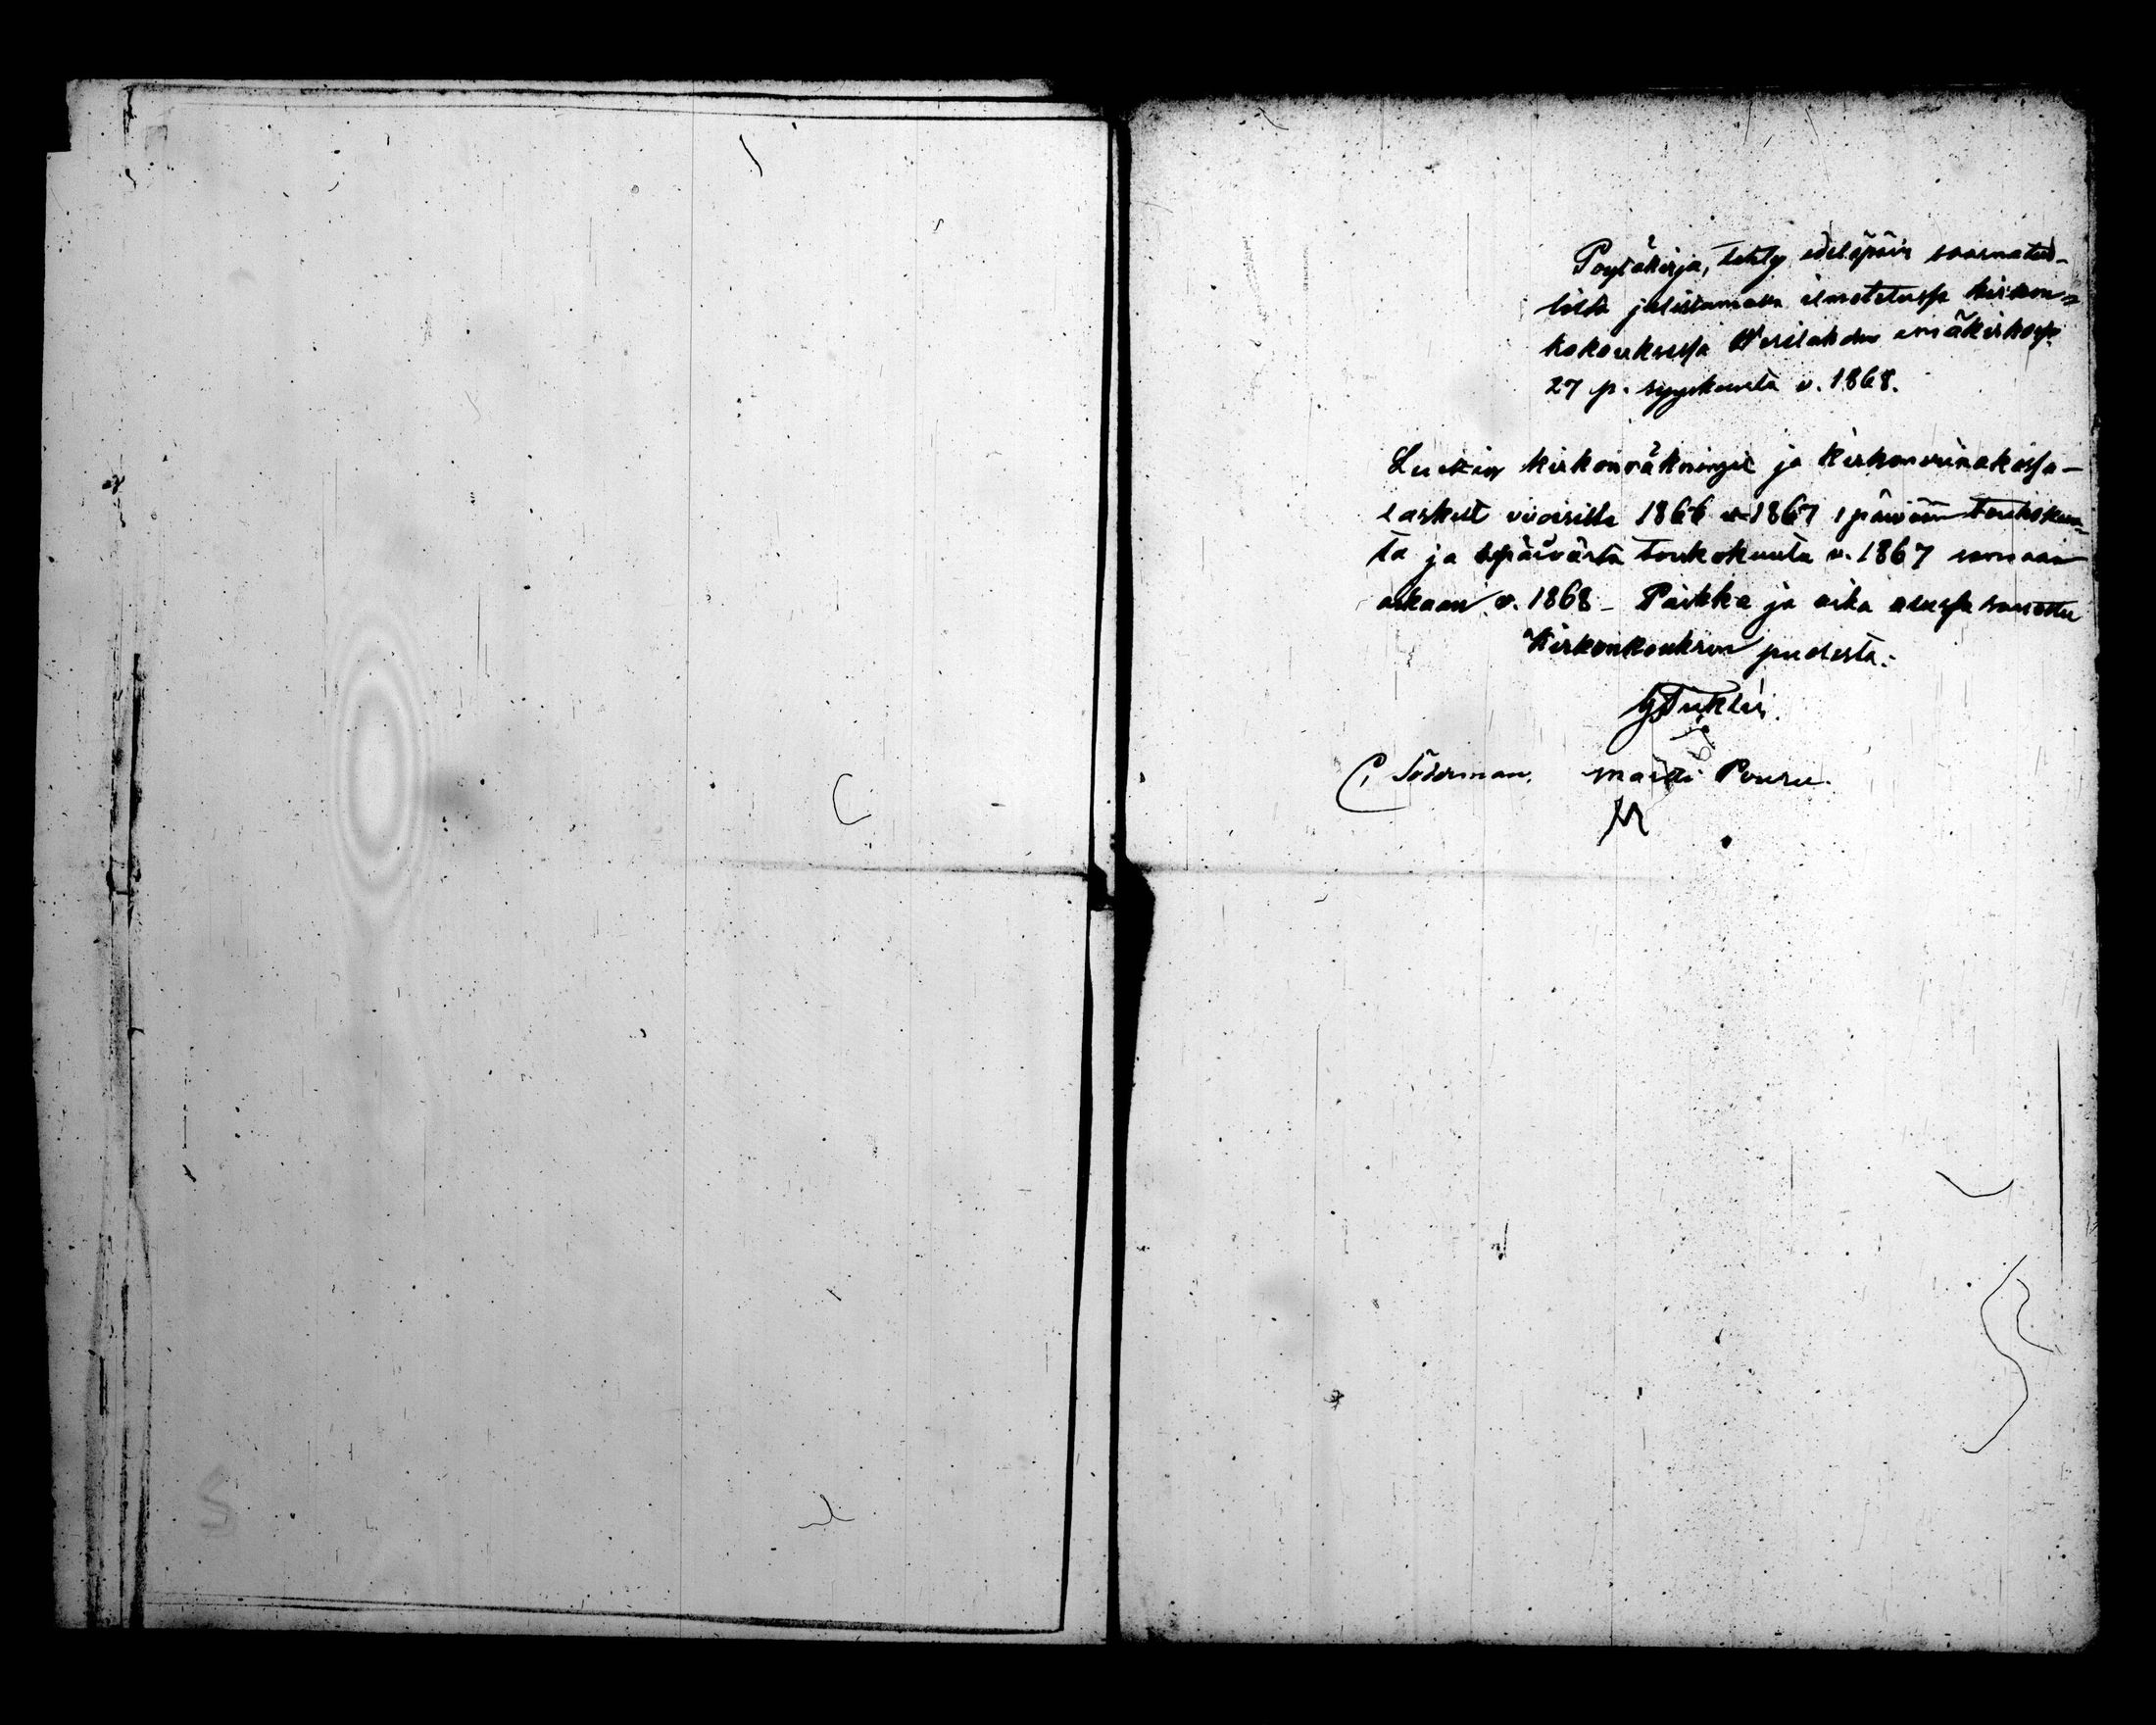 Poytäkirja, tehty edeläpäin saarnatuo-
lista julistamassa ilmotetussa kirkon=
kokouksessa Wesilahden emäkirkossa
27 p. syyskuuta v. 1868.
Luettin kirkonräkningit ja kirkonviinakassa-
laskut vuosilta 1866 1867 1 päivään toukokuu=
ta ja 1 päivästä toukokuuta v. 1867 samaan
aikaan v. 1868 - Paikka ja aika alussa sanottu
Kirkonkouksen puolesta:
C Söderman. Matti Pouru.